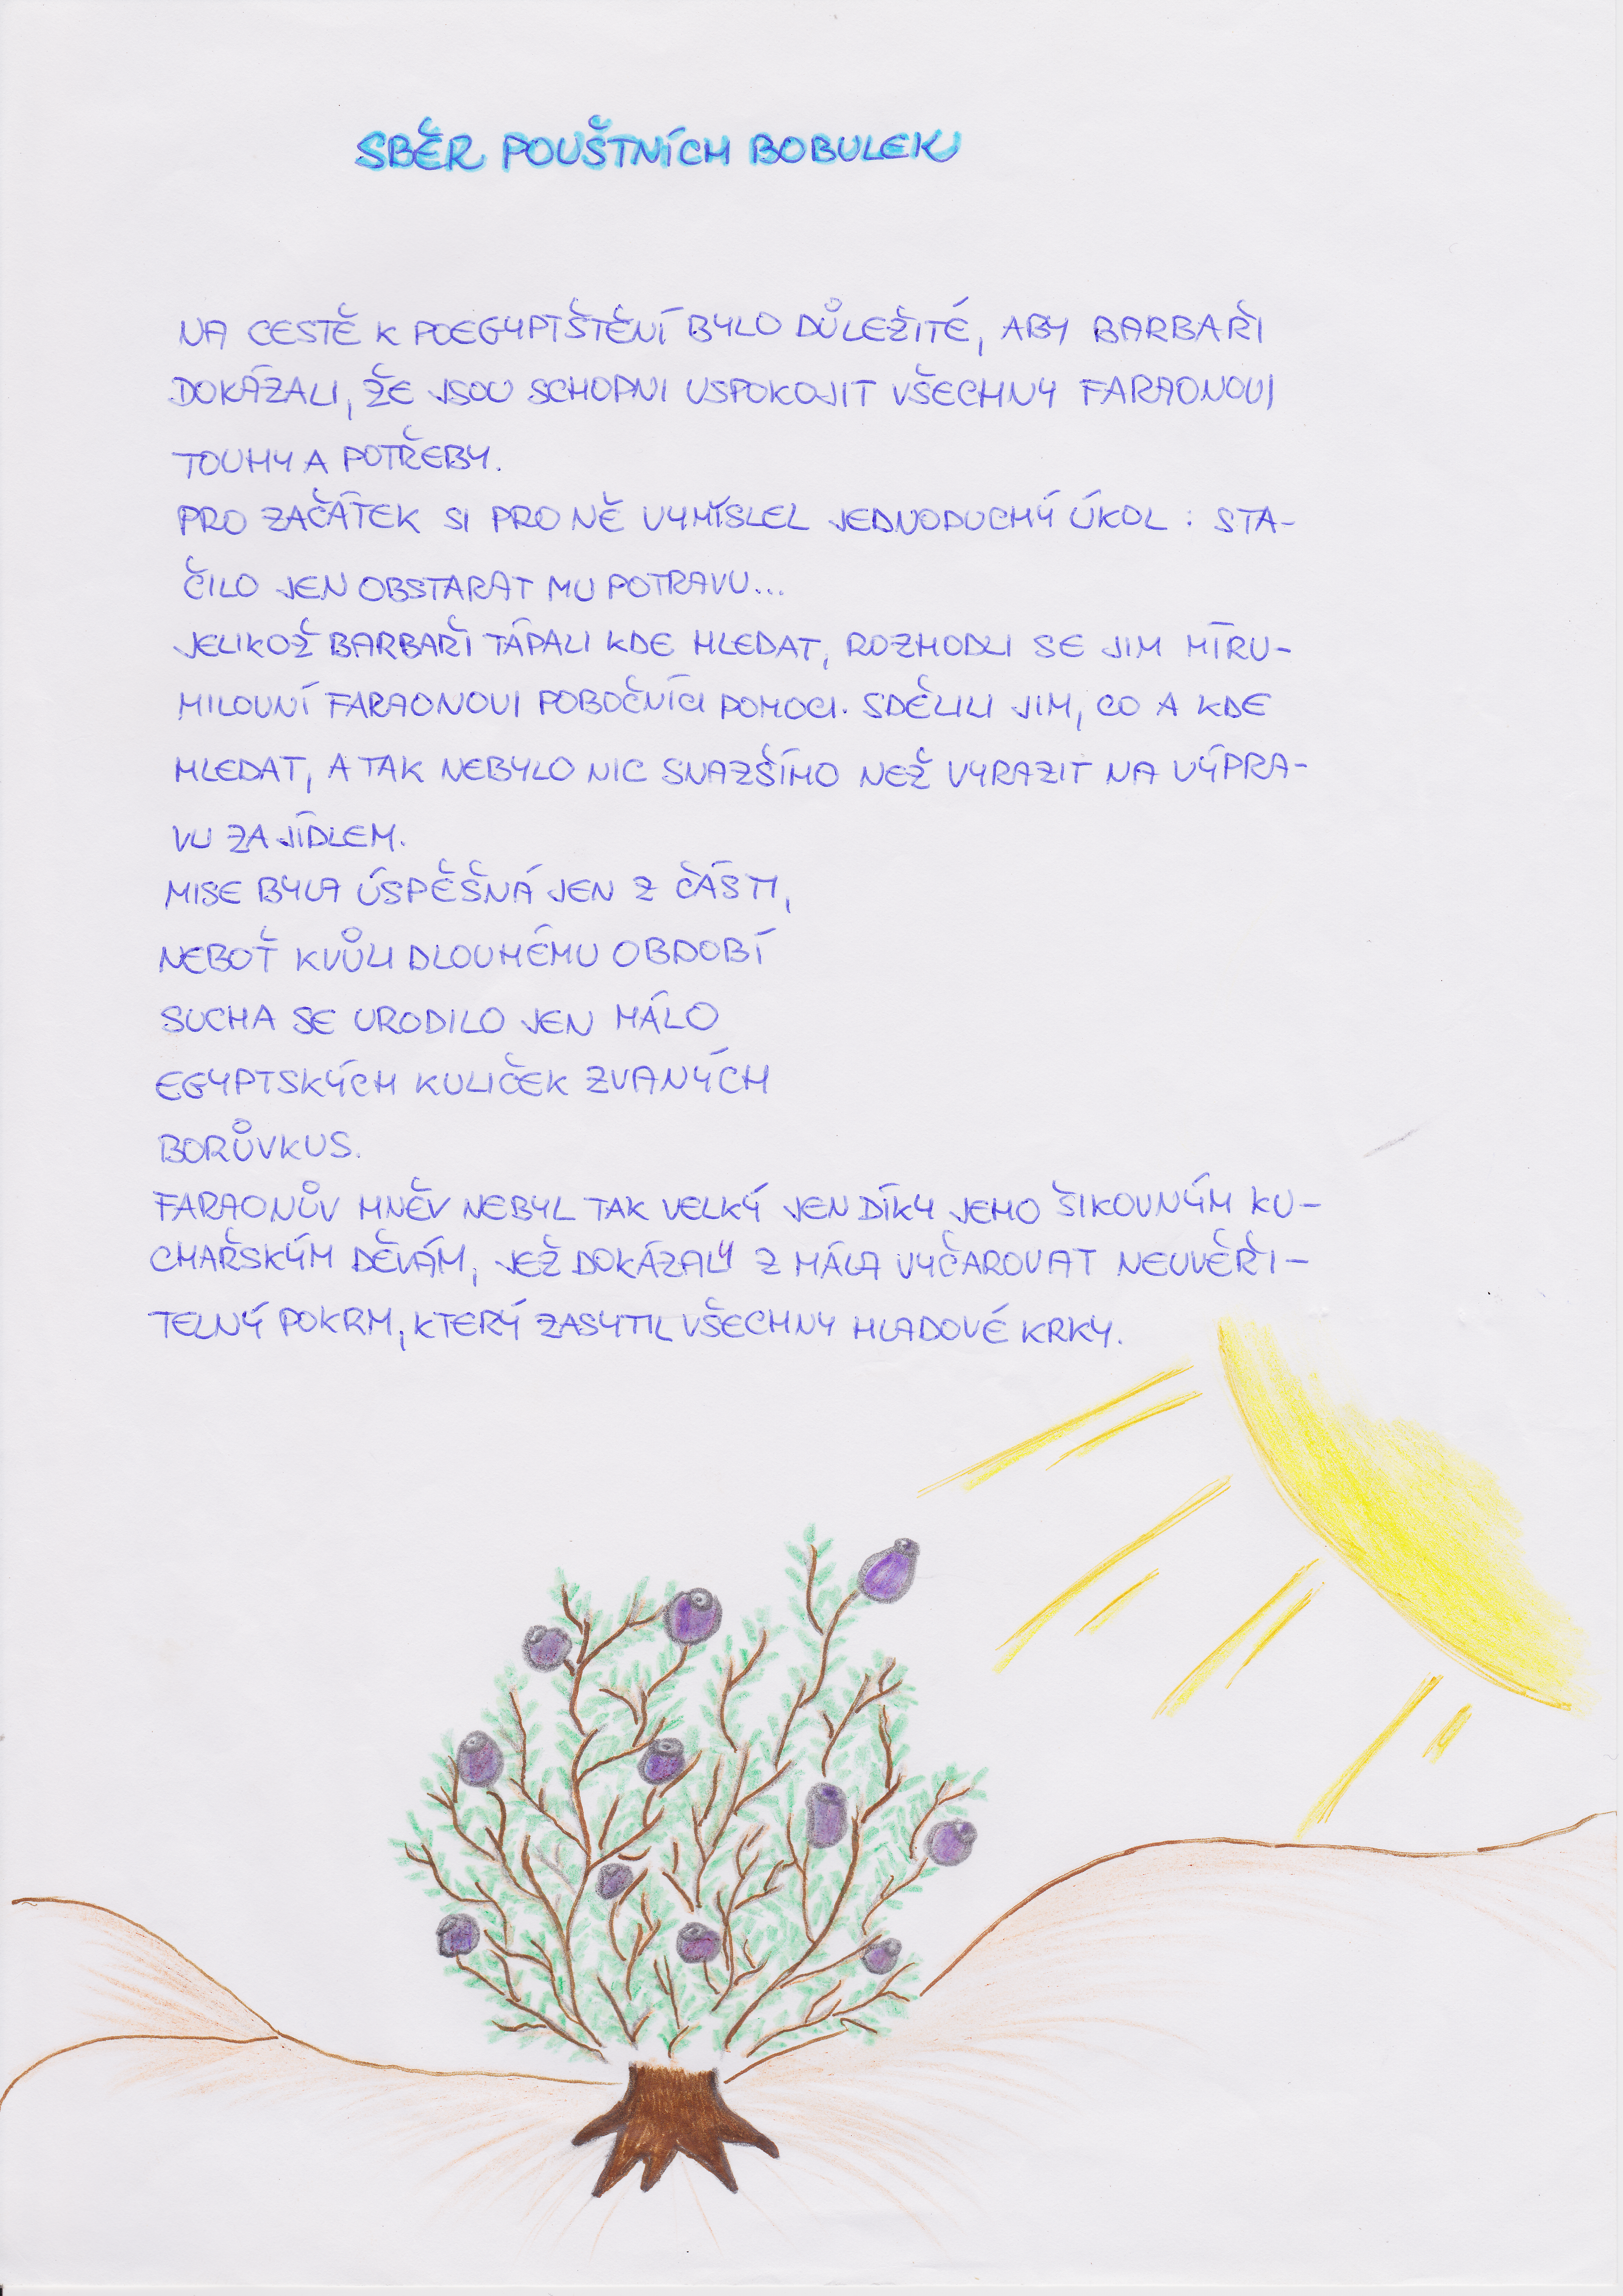 SBĚR POUŠTNÍCH BOBULEK
NA CESTĚ K POEGYPTŠTĚNÍ BYLO DŮLEŽITÉ, ABY BARBAŘI
DOKÁZALI, ŽE JSOU SCHOPNI USPOKOJIT VŠECHNY FARAONOVI
TOUHY A POTŘEBY.
PRO ZAČÁTEK SI PRO NĚ VYMYSLEL JEDNODUCHÝ ÚKOL: STA-
ČILO JEN OBSTARAT MU POTRAVU...
JELIKOŽ BARBAŘI TÁPALI KDE HLEDAT, ROZHODLI SE JIM MÍRU-
MILOVNÍ FARAONOVI POBOČNÍCI POMOCI. SDĚLILI JIM, CO A KDE
HLEDAT, A TAK NEBYLO NIC SNAZŠÍHO NEŽ VYRAZIT NA VÝPRA-
VU ZA JÍDLEM.
MISE BYLA ÚSPĚŠNÁ JEN Z ČÁSTI,
NEBOŤ KVŮLI DLOUHÉMU OBDOBÍ
SUCHA SE URODILO JEN MÁLO
EGYPTSKÝCH KULIČEK ZVANÝCH
BORŮVKUS.
FARAONŮV HNĚV NEBYL TAK VELKÝ JEN DÍKY JEHO ŠIKOVNÝM KU-
CHAŘSKÝM DĚVÁM, JEŽ DOKÁZALY Z MÁLA VYČAROVAT NEUVĚŘI-
TELNÝ POKRM, KTERÝ ZASYTIL VŠECHNY HLADOVÉ KRKY.